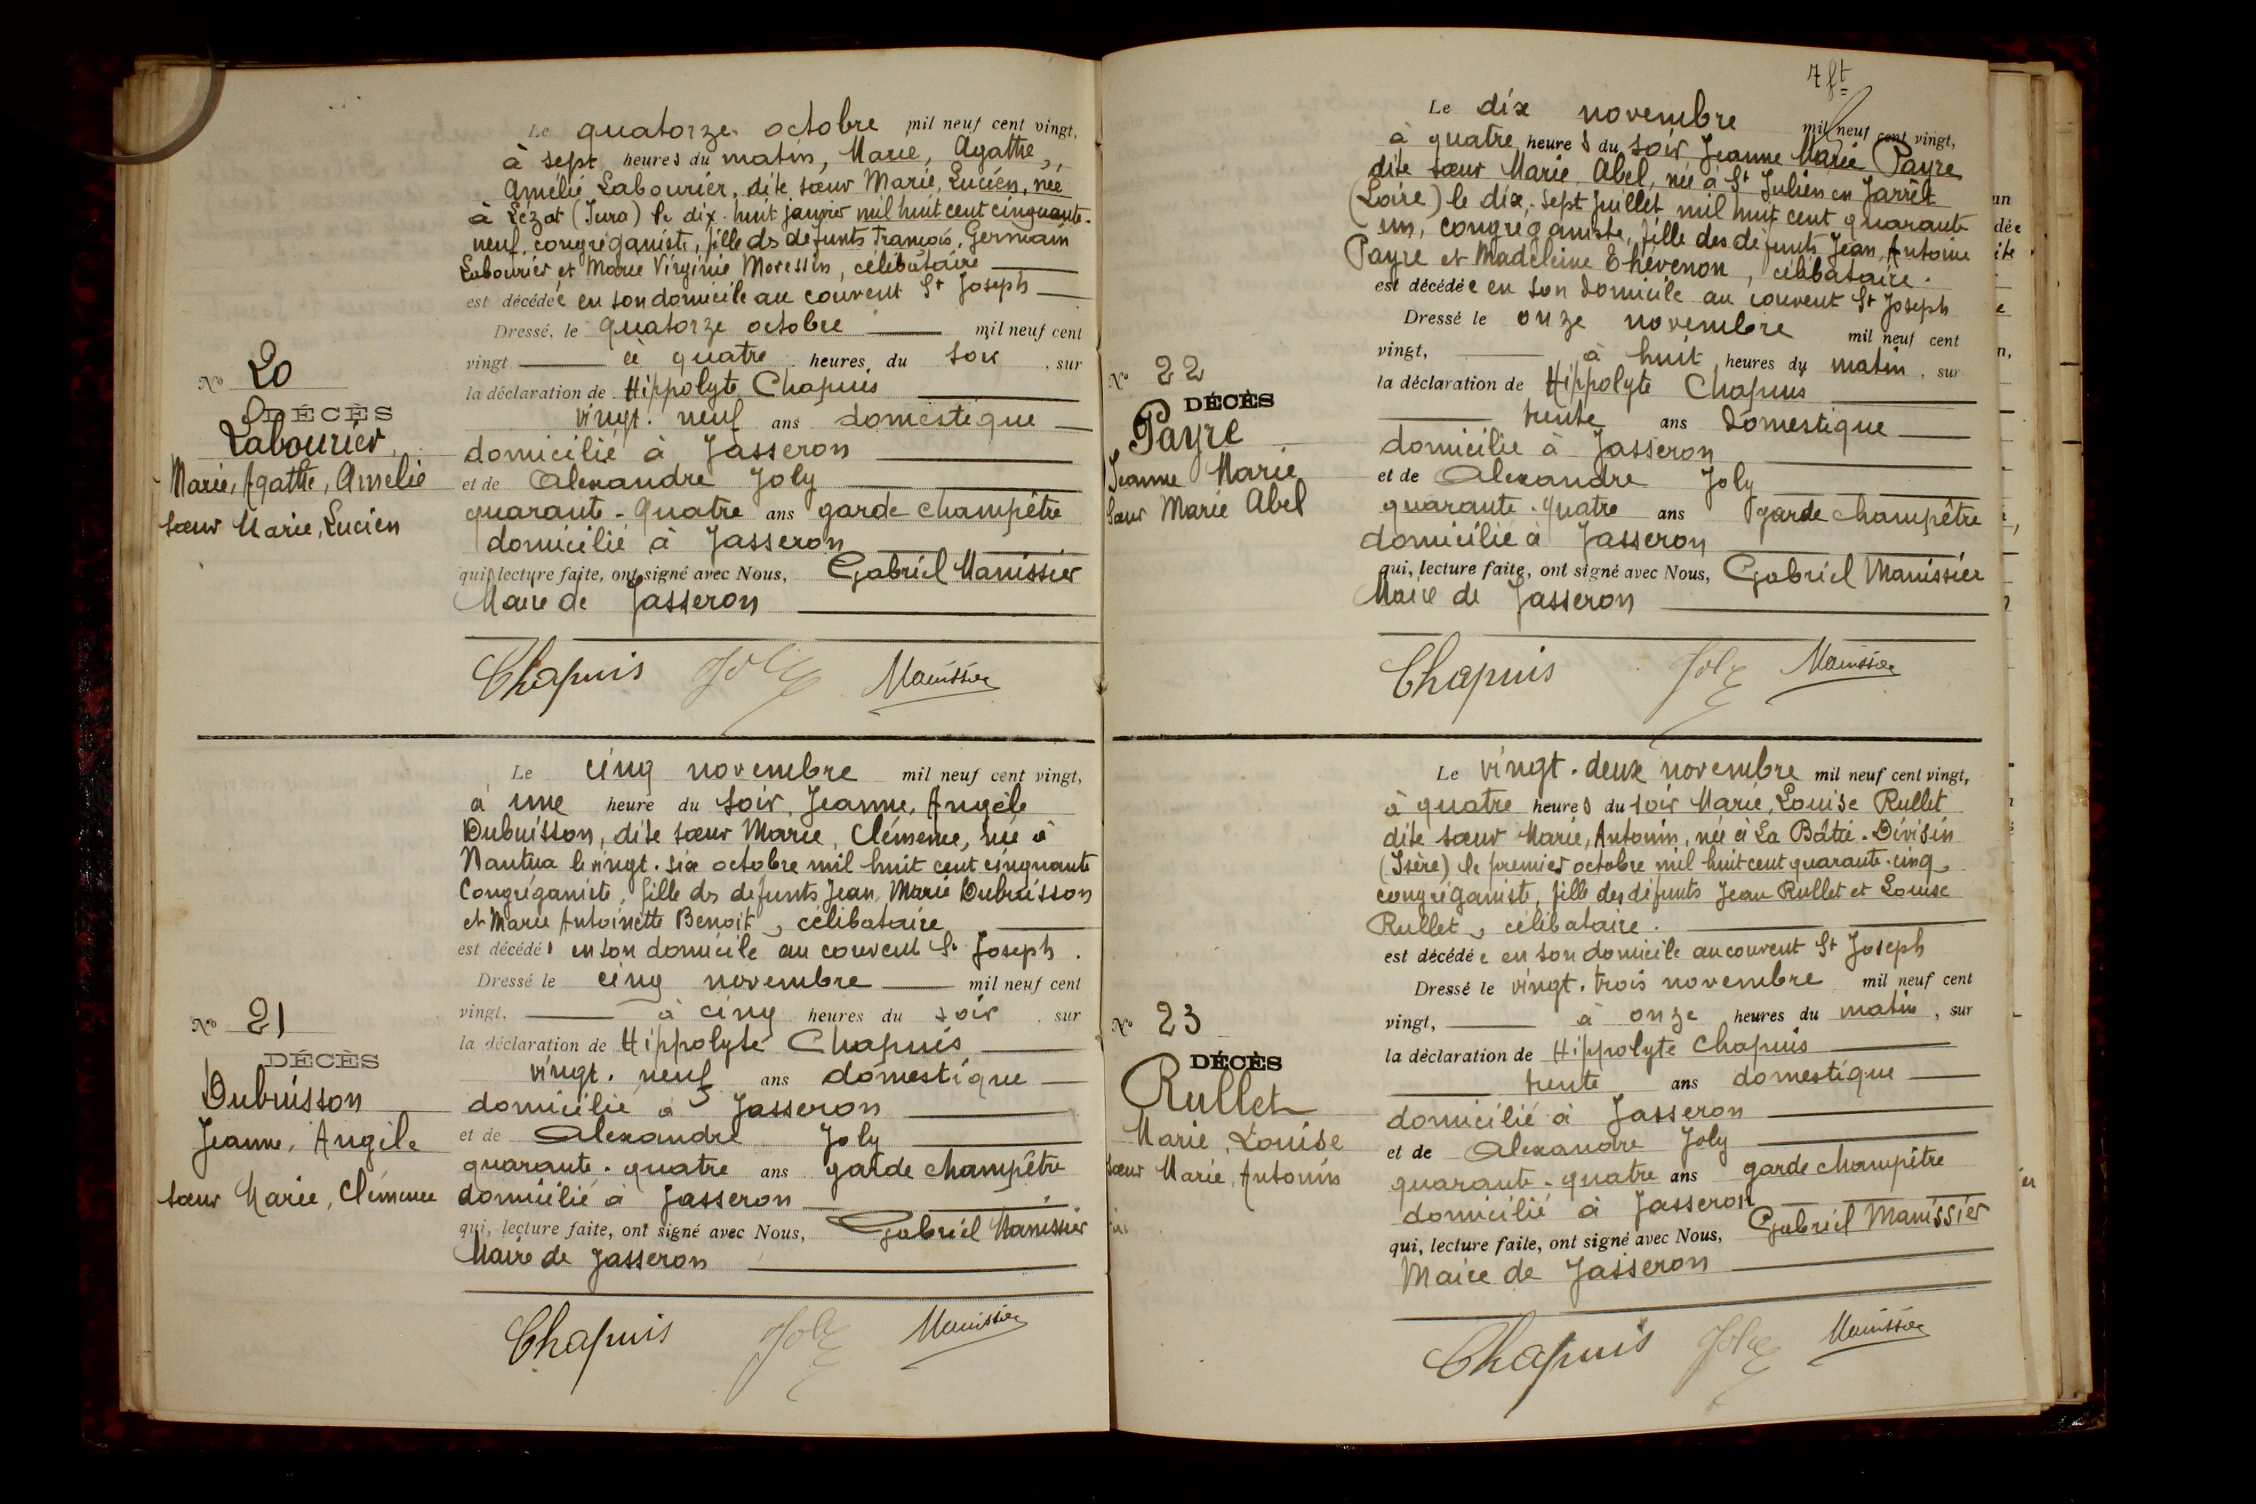 Le quatorze octobre mil neuf cent vingt,
à sept heures du matin, Marie, Agathe,
Amélie Labourier, dite sœur Marie, Lucien, née
à Lézat (Jura) le dix-huit janvier mil huit cent cinquante-
neuf, congréganiste, fille des défunts François, Germain
Labourier et Marie Virginie Moressin, célibataire
est décédée en son domicile au couvent St Joseph
Dressé, le quatorze octobre mil neuf cent
vingt à quatre heures du soir, sur
la déclaration de Hippolyte Chapuis
vingt-neuf ans domestique
domicilié à Jasseron
et de Alexandre Joly
quarante-quatre ans garde champêtre
domicilié à Jasseron
qui, lecture faite, ont signé avec Nous, Gabriel Manissier
Maire de Jasseron
Chapuis Joly Manissier
No 20
DÉCÈS
Labourier
Marie, Agathe, Amélie
sœur Marie, Lucien
Le cinq novembre mil neuf cent vingt,
à une heure du soir, Jeanne, Angèle
Dubuisson, dite sœur Marie, Clémence, née à
Nantua le vingt-six octobre mil huit cent cinquante
Congréganiste, fille des défunts Jean, Marie Dubuisson
et Marie Antoinette Benoit, célibataire
est décédée en son domicile au couvent St Joseph.
Dressé le cinq novembre mil neuf cent
vingt, à cinq heures du soir, sur
la déclaration de Hippolyte Chapuis
vingt-neuf ans domestique
domicilié à Jasseron
et de Alexandre Joly
quarante-quatre ans garde champêtre
domicilié à Jasseron
qui, lecture faite, ont signé avec Nous, Gabriel Manissier
Maire de Jasseron
Chapuis Joly Manissier
No 21
DÉCÈS
Dubuisson
Jeanne, Angèle
sœur Marie, Clémence
7 ft
Le dix novembre mil neuf cent vingt,
à quatre heures du soir Jeanne Marie Payre
dite sœur Marie Abel, née à St Julien en Jarrêt
(Loire) le dix-sept juillet mil huit cent quarante
un, congréganiste, fille des défunts Jean, Antoine
Payre et Madeleine Thévenon, célibataire.
est décédée en son domicile au couvent St Joseph
Dressé le onze novembre mil neuf cent
vingt, à huit heures du matin, sur
la déclaration de Hippolyte Chapuis
trente ans domestique
domicilié à Jasseron
et de Alexandre Joly
quarante-quatre ans garde champêtre
domicilié à Jasseron
qui, lecture faite, ont signé avec Nous, Gabriel Manissier
Maire de Jasseron
Chapuis Joly Manissier
No 22
DÉCÈS
Payre
Jeanne Marie
sœur Marie Abel
Le vingt-deux novembre mil neuf cent vingt,
à quatre heures du soir Marie, Louise Rullet
dite sœur Marie, Antonin, née à La Bâtie-Divisin
(Isère) le premier octobre mil huit cent quarante-cinq,
congréganiste, fille des défunts Jean Rullet et Louise
Rullet, célibataire.
est décédée en son domicile au couvent St Joseph
Dressé le vingt-trois novembre mil neuf cent
vingt, à onze heures du matin, sur
la déclaration de Hippolyte Chapuis
trente ans domestique
domicilié à Jasseron
et de Alexandre Joly
quarante-quatre ans garde champêtre
domicilié à Jasseron
qui, lecture faite, ont signé avec Nous, Gabriel Manissier
Maire de Jasseron
Chapuis Joly Manissier
No 23
DÉCÈS
Rullet
Marie, Louise
sœur Marie, Antonin